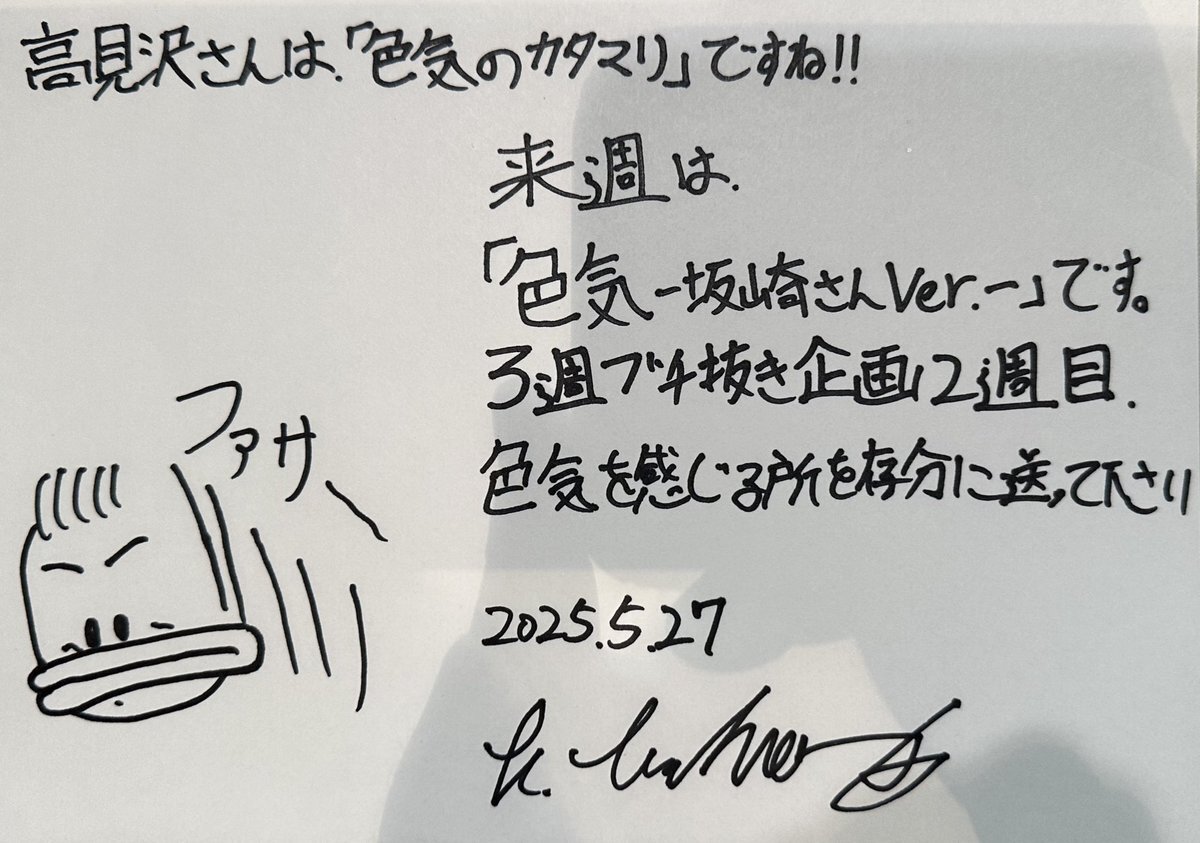 高見沢さんは、「色気のカタマリ」ですね!!
来週は、
「色気-坂崎さんVer.-」です。
3週ブチ抜き企画2週目、
色気を感じる所を存分に送って下さい
ファサ
2025.5.27